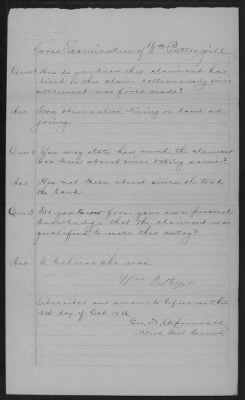 Cross Examination of Wm Pettergill
Ques 1 How do you know this claimant has
lived on this claim continuously since
settlement was first made?
Ans. From observation living on land ad
joining.
Ques 2 You may state how much the claimant
has been absent since taking same?
Ans. Has not been absent since she took
the land.
Ques 3 Do you know from your own personal
knowledge that the claimant was
qualified to make this entry?
Ans. I believe she was
Wm
Subscribed and sworn to before me this
day of Oct
Geo.
Clerk Dist Court